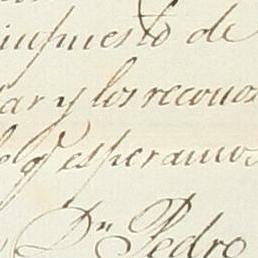 impuesto de
ar y los recono
le q.e esperamos
Dn Pedro